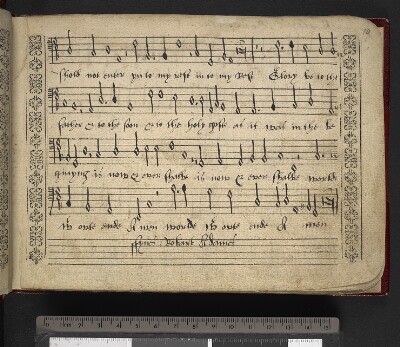 shold not enter yn to my rest in to my Rest Glory be to the
father & to the sonn & to the holy gost as it was in the be
gining is now & ever shalbe is now & ever shalbe worlde
wt oute ende A men worlde wt oute ende A men
finis Robart Adames